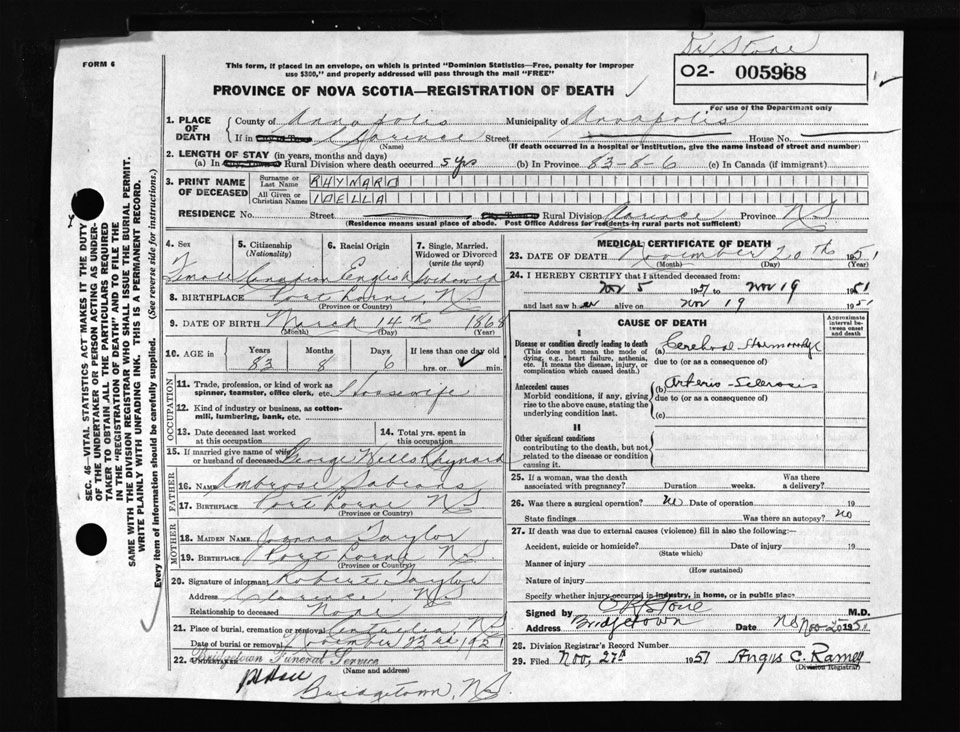 Dr Stone
FORM 6
This form, if placed in an envelope, on which is printed "Dominion Statistics—Free, penalty for improper
use $300," and properly addressed will pass through the mail "FREE"
O2- 005968
For use of the Department only
PROVINCE OF NOVA SCOTIA—REGISTRATION OF DEATH
1. PLACE OF DEATH County of Annapolis Municipality of Annapolis
If in City or Town Clarence Street House No.
(Name) (If death occurred in a hospital or institution, give the name instead of street and number)
2. LENGTH OF STAY (in years, months and days)
(a) In City Town or Rural Division where death occurred 5 yrs (b) In Province 83-8-6 (c) In Canada (if immigrant)
3. PRINT NAME OF DECEASED Surname or Last Name RHYNARD
All Given or Christian Names IDELLA
RESIDENCE No. Street City Town or Rural Division Clarence Province N S
(Residence means usual place of abode. Post Office Address for residents in rural parts not sufficient)
4. Sex 5. Citizenship (Nationality) 6. Racial Origin 7. Single, Married, Widowed or Divorced (write the word)
Female Canadian English Widowed
8. BIRTHPLACE Port Lorne, N S
(Province or Country)
9. DATE OF BIRTH March 14th 1868
(Month) (Day) (Year)
10. AGE in Years Months Days If less than one day old
83 8 6 hrs. or min.
OCCUPATION
11. Trade, profession, or kind of work as spinner, teamster, office clerk, etc. Housewife
12. Kind of industry or business, as cotton-mill, lumbering, bank, etc.
13. Date deceased last worked at this occupation
14. Total yrs. spent in this occupation
15. If married give name of wife or husband of deceased George Wells Rhynard
FATHER
16. Name Ambrose Sabeans
17. Birthplace Port Lorne N S
(Province or Country)
MOTHER
18. MAIDEN NAME Joanna Taylor
19. BIRTHPLACE Port Lorne N S.
(Province or Country)
20. Signature of informant Robert Taylor
Address Clarence N S
Relationship to deceased None
21. Place of burial, cremation or removal Centrelea, N S
Date of burial or removal November 23rd 1951
22. UNDERTAKER Bridgetown Funeral Service
(Name and address)
Bridgetown, N.S.
MEDICAL CERTIFICATE OF DEATH
23. DATE OF DEATH November 20th 1951
(Month) (Day) (Year)
24. I HEREBY CERTIFY that I attended deceased from:
Nov 5 1951 to Nov 19 1951
and last saw her alive on Nov 19 1951
CAUSE OF DEATH
Approximate interval between onset and death
I
Disease or condition directly leading to death
(This does not mean the mode of dying, e.g., heart failure, asthenia, etc. It means the disease, injury, or complication which caused death.)
(a) Cerebral Haemorrhage
due to (or as a consequence of)
Antecedent causes
Morbid conditions, if any, giving rise to the above cause, stating the underlying condition last.
(b) Arterio-Sclerosis
due to (or as a consequence of)
(c)
II
Other significant conditions
contributing to the death, but not related to the disease or condition causing it.
25. If a woman, was the death associated with pregnancy? Duration weeks. Was there a delivery?
26. Was there a surgical operation? No Date of operation 19
State findings Was there an autopsy? No
27. If death was due to external causes (violence) fill in also the following:—
Accident, suicide or homicide? Date of injury 19
(State which)
Manner of injury
(How sustained)
Nature of injury
Specify whether injury occurred in industry, in home, or in public place
Signed by Stone M.D.
Address Bridgetown N S Date Nov 20 1951
28. Division Registrar's Record Number
29. Filed Nov, 27th 1951 Angus C. Ramey
(Division Registrar)
SEC. 46—VITAL STATISTICS ACT MAKES IT THE DUTY
OF THE UNDERTAKER OR PERSON ACTING AS UNDER-
TAKER TO OBTAIN ALL THE PARTICULARS REQUIRED
IN THE "REGISTRATION OF DEATH" AND TO FILE THE
SAME WITH THE DIVISION REGISTRAR WHO SHALL ISSUE THE BURIAL PERMIT.
WRITE PLAINLY WITH UNFADING INK. THIS IS A PERMANENT RECORD.
Every item of information should be carefully supplied. (See reverse side for instructions.)